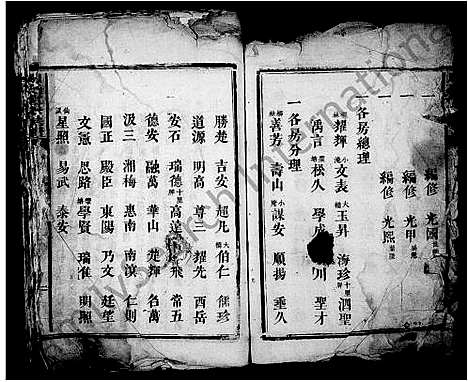 編修 光國
編修 光甲
編修 光熙
一各房總理
耀輝 文表 玉昇 海珍 泗聖
禹言 松久 學成 川 聖才
一各房分理
善芳 壽山 謀安 順揚 垂久
勝楚 吉安 超凡 伯仁 儒珍
道源 明高 尊三 耀先 西岳
安石 瑞德 高達 飛 常五
德安 融萬 華山 楚輝 名萬
汲三 湘梅 惠南 南濱 仁則
國正 殿臣 東陽 乃文 廷望
文憲 思路 學賢 瑞准 明照
星照 易武 泰安
International